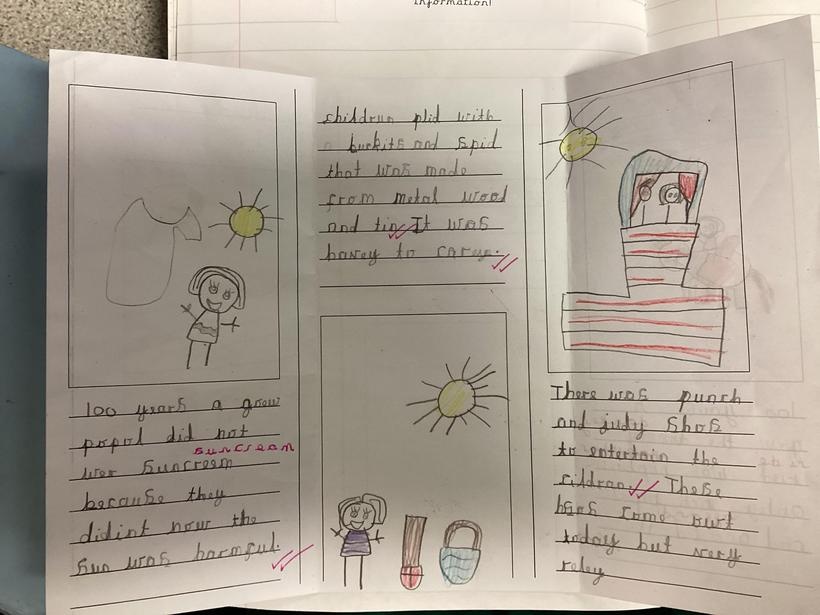 information!
100 years a grow
popol did not
suncream
wer suncreem
because they
didint now the
sun was harmful.
children plid with
buckits and spid
that was made
from metal wood
and tin. It was
havey to carye.
There was punch
and judy shos
to entertain the
cildran. These
come owt
today but very
reley